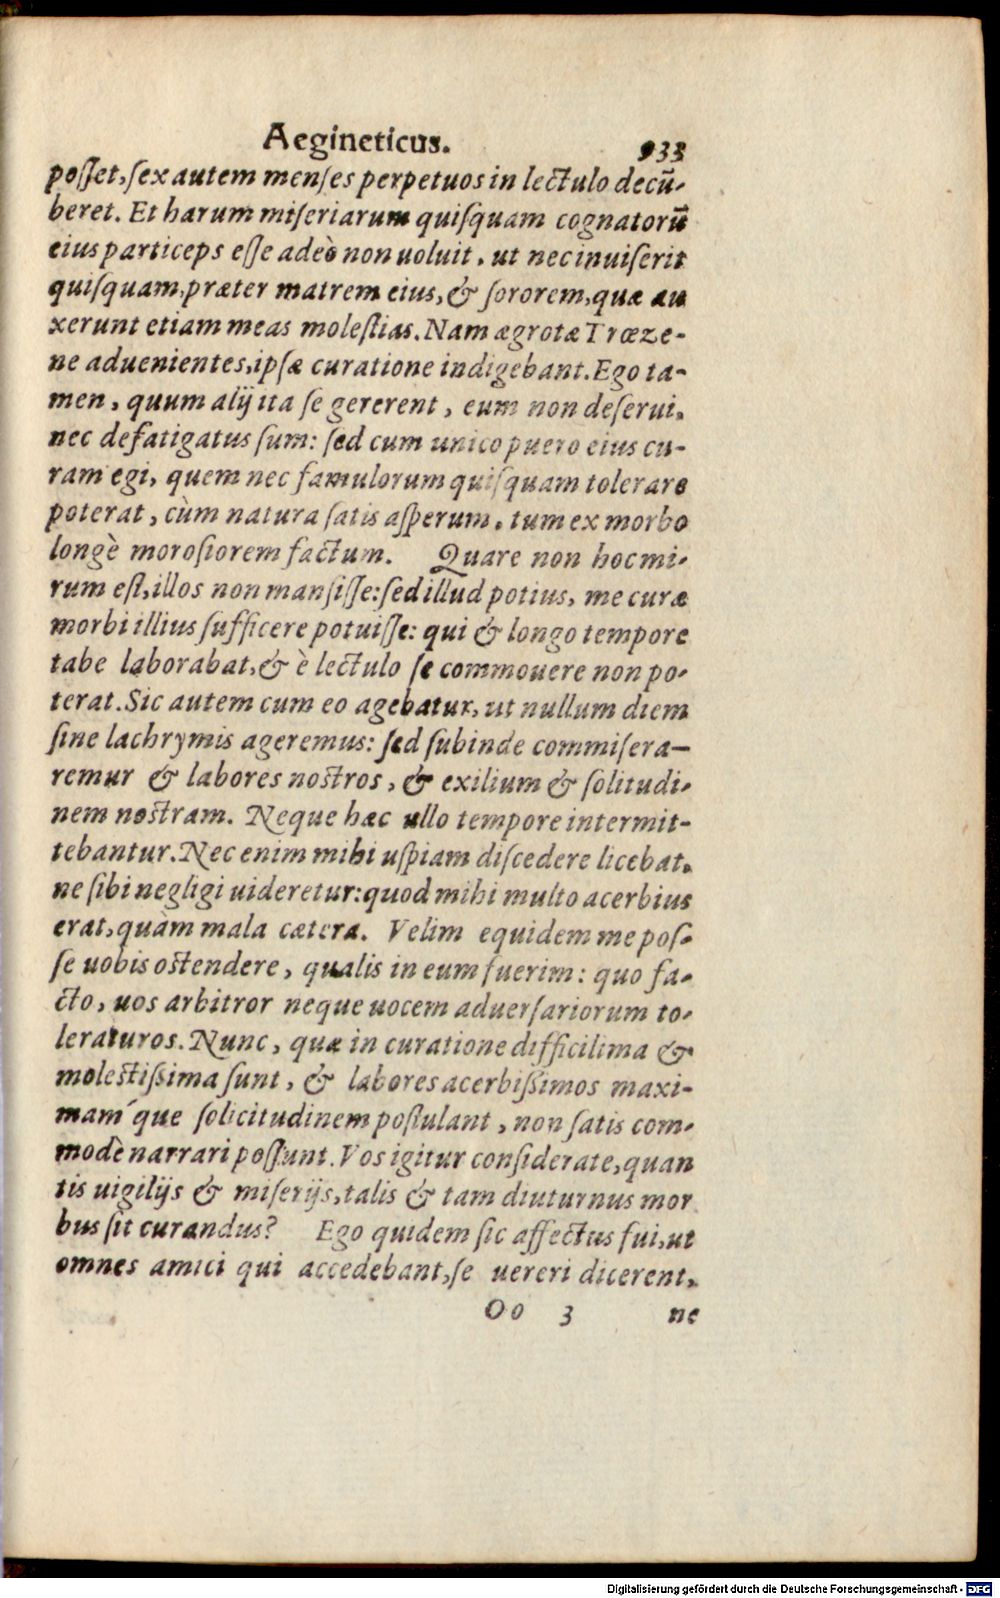 Aegineticus. 933
posſet, ſex autem menſes perpetuos in lectulo decū-
beret. Et harum miſeriarum quiſquam cognatorū
eius particeps eſſe adeò non uoluit, ut nec inuiſerit
quiſquam, præter matrem eius, & ſororem, quæ au
xerunt etiam meas moleſtias. Nam ægrotæ Trœze-
ne aduenientes, ipſæ curatione indigebant. Ego ta-
men, quum alij ita ſe gererent, eum non deſerui,
nec defatigatus ſum: ſed cum unico puero eius cu-
ram egi, quem nec famulorum quiſquam tolerare
poterat, cùm natura ſatis aſperum, tum ex morbo
longè moroſiorem factum. Quare non hoc mi-
rum eſt, illos non manſiſſe: ſed illud potius, me curæ
morbi illius ſufficere potuiſſe: qui & longo tempore
tabe laborabat, & è lectulo ſe commouere non po-
terat. Sic autem cum eo agebatur, ut nullum diem
ſine lachrymis ageremus: ſed ſubinde commiſera-
remur & labores nostros, & exilium & ſolitudi-
nem nostram. Neque hæc ullo tempore intermit-
tebantur. Nec enim mihi uſpiam diſcedere licebat,
ne ſibi negligi uideretur: quod mihi multo acerbius
erat, quàm mala cætera. Velim equidem me poſ-
ſe uobis ostendere, qualis in eum fuerim: quo fa-
cto, uos arbitror neque uocem aduerſariorum to-
leraturos. Nunc, quæ in curatione difficilima &
molestiſsima ſunt, & labores acerbiſsimos maxi-
mam´que ſolicitudinem poſtulant, non ſatis com-
modè narrari poſſunt. Vos igitur conſiderate, quan
tis uigilijs & miſerijs, talis & tam diuturnus mor
bus ſit curandus? Ego quidem ſic affectus fui, ut
omnes amici qui accedebant, ſe uereri dicerent,
Oo 3 ne
Digitalisierung gefördert durch die Deutsche Forschungsgemeinschaft - DFG